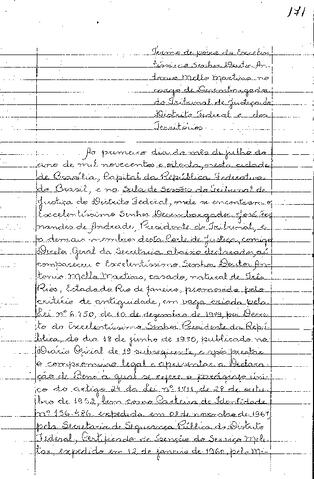 171
Termo de posse do Excelen
tíssimo Senhor Doutor An
tonio Mello Martins no
cargo de Desembargador
do Tribunal de Justiça do
Distrito Federal e dos
Territórios
Ao primeiro dia do mês de julho do
ano de mil novecentos e oitenta, nesta cidade
de Brasília, Capital da República Federativa
do Brasil, e na Sala de Sessão do Tribunal de
Justiça do Distrito Federal, onde se encontravam o
Excelentíssimo Senhor Desembargador José Fer
nandes de Andrade, Presidente do Tribunal, e
os demais membros desta Corte de Justiça, comigo
Diretor Geral da Secretaria abaixo declarado,
compareceu o Excelentíssimo Senhor Doutor An
tonio Mello Martins, casado, natural de Três
Rios, Estado do Rio de Janeiro, promovido pelo
critério de antiguidade, em vaga criada pela
Lei nº 6.750, de 10 de dezembro de 1979, por Decre
to do Excelentíssimo Senhor Presidente da Repú
blica, do dia 18 de junho de 1980, publicado no
Diário Oficial de 19 subsequente, e após prestar
o compromisso legal e apresentar a Declara
ção de Bens a que se refere o parágrafo úni
co do artigo 24 da Lei nº 1.711, de 28 de outu
bro de 1952, bem como Carteira de Identidade
nº 136.486, expedida em 08 de novembro de 1967
pela Secretaria de Segurança Pública do Distrito
Federal, Certificado de Isenção do Serviço Mili
tar, expedido em 12 de janeiro de 1960, pelo Mi